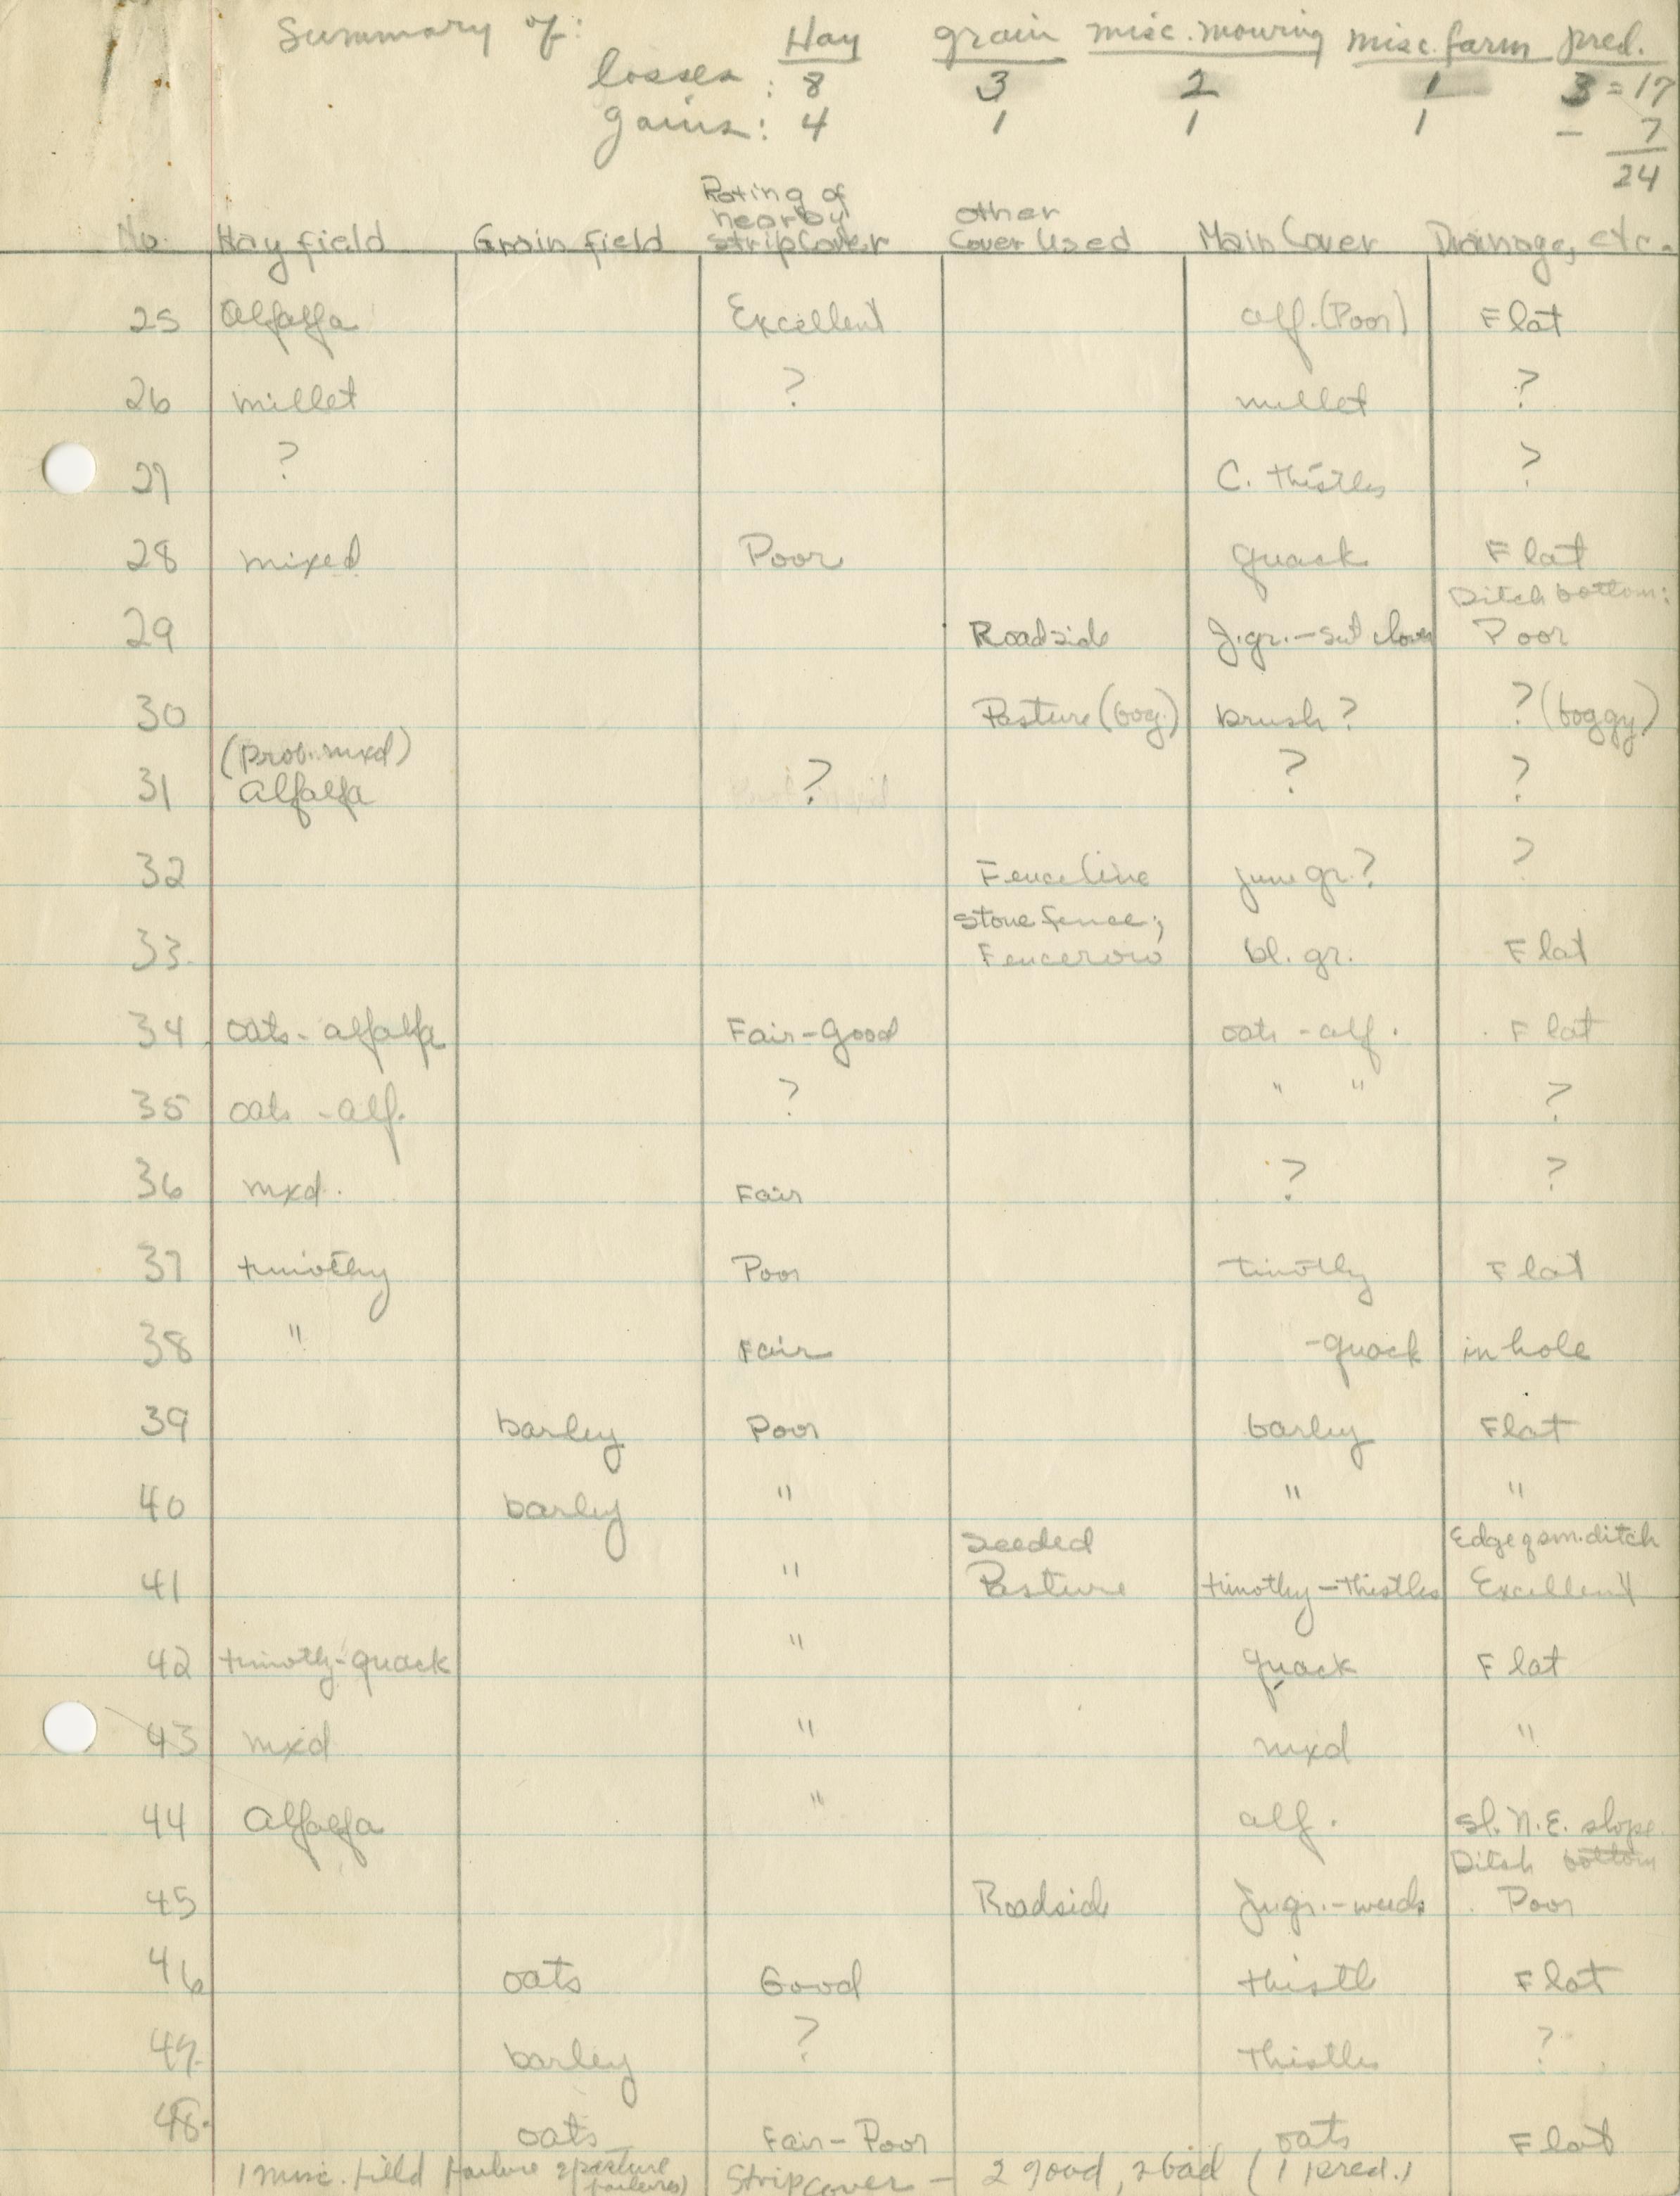 Summary of: Hay grain misc. mowing misc. farm pred.
losses : 8 3 2 1 3 = 17
gains : 4 1 1 1 – 7
24
No. Hay field Grain field Rating of nearby strip Cover Other Cover Used Main Cover Drainage, etc.
25 Alfalfa Excellent alf. (Poor) Flat
26 millet ? millet ?
27 ? C. thistles ?
28 mixed Poor quack Flat
Ditch bottom:
29 Roadside J.gr. – swt clover Poor
30 Pasture (bog.) brush ? ? (boggy)
(Prob. mxd)
31 Alfalfa ? ? ?
32 Fence line june gr. ? ?
Stone fence;
33. Fencerow bl. gr. Flat
34 oats - alfalfa Fair - Good oats - alf. Flat
35 oats - alf. ? " " ?
36 mxd. Fair ? ?
37 timothy Poor timothy Flat
38 " Fair - quack in hole
39 barley Poor barley Flat
40 barley " " "
Seeded Edge of sm. ditch
41 " Pasture timothy – Thistles Excellent
42 timothy - quack " quack Flat
43 mxd " mxd "
44 Alfalfa " alf. Sl. N.E. slope
Ditch bottom
45 Roadside Ju.gr. – weeds Poor
46 oats Good thistl Flat
47. barley ? Thistles ?
48. oats Fair – Poor oats Flat
1 misc. field failure 2 pasture failures) Strip Cover – 2 good, 2 bad (1 pred.)